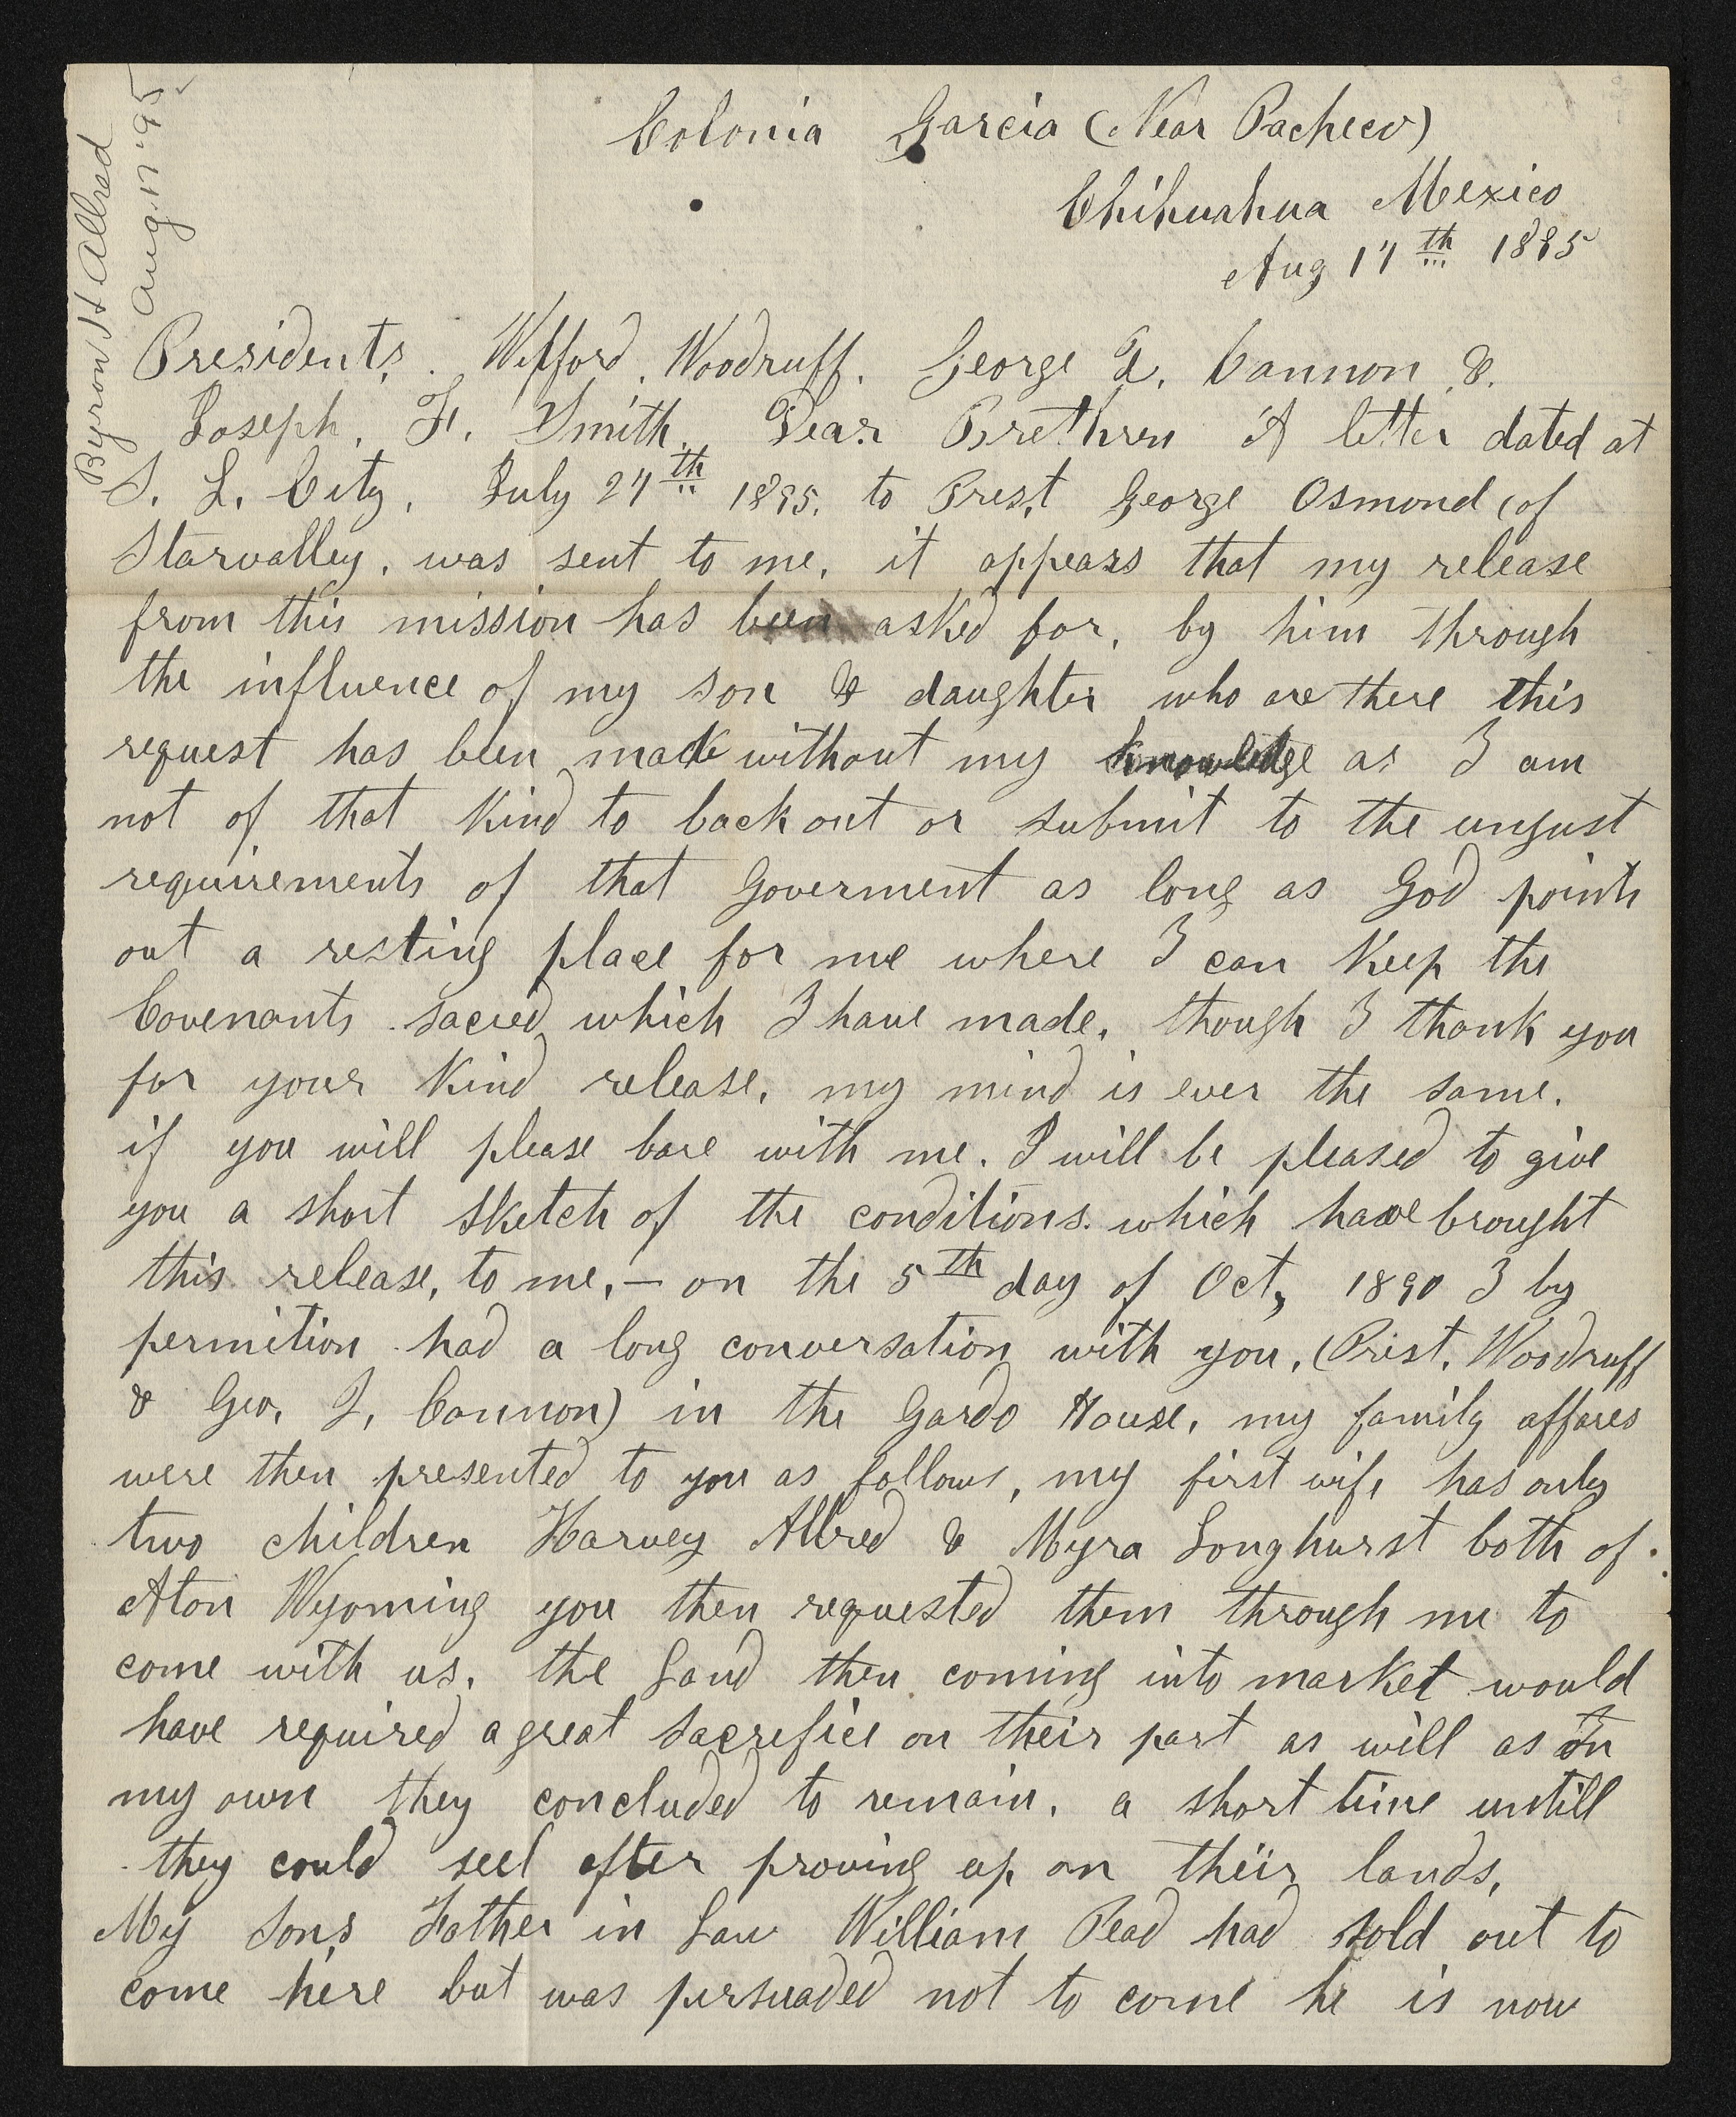 Byron H Allred
Aug. 17 '95
Colonia Garcia (Near Pacheco)
Chihuahua Mexico
Aug 17th 1895
Presidents. Wilford. Woodruff. George Q. Cannon &.
Joseph. F. Smith. Dear Brethren A letter dated at
S. L. City. July 27th 1895. to Prest George Osmond (of
Starvalley. was sent to me. it appears that my release
from this mission has been asked for, by him through
the influence of my son & daughter who are there this
request has been made without my knowledge as I am
not of that kind to back out or submit to the unjust
requirements of that Goverment as long as God points
out a resting place for me where I can keep the
Covenants sacred which I have made. though I thank you
for your kind release. my mind is ever the same.
if you will please bare with me. I will be pleased to give
you a short sketch of the conditions. which have brought
this release, to me, — on the 5th day of Oct, 1890 I by
permition had a long conversation with you, (Prest. Woodruff
& Geo. Q, Cannon) in the Gardo House, my family affares
were then presented to you as follows, my first wife has only
two children Harvey Allred & Myra Longhurst both of
Aton Wyoming you then requested them through me to
come with us. the Land then coming into market would
have required a great sacrefice on their part as will as In
my own they concluded to remain. a short time untill
they could seel after proving up on their lands,
My Sons Father in Law William Pead had sold out to
come here but was persuaded not to come he is now